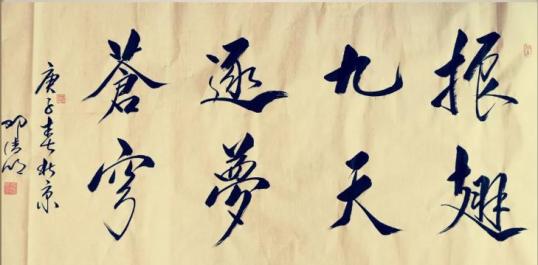 振翅
九天
逐夢
蒼穹
庚子春於京
邓清明